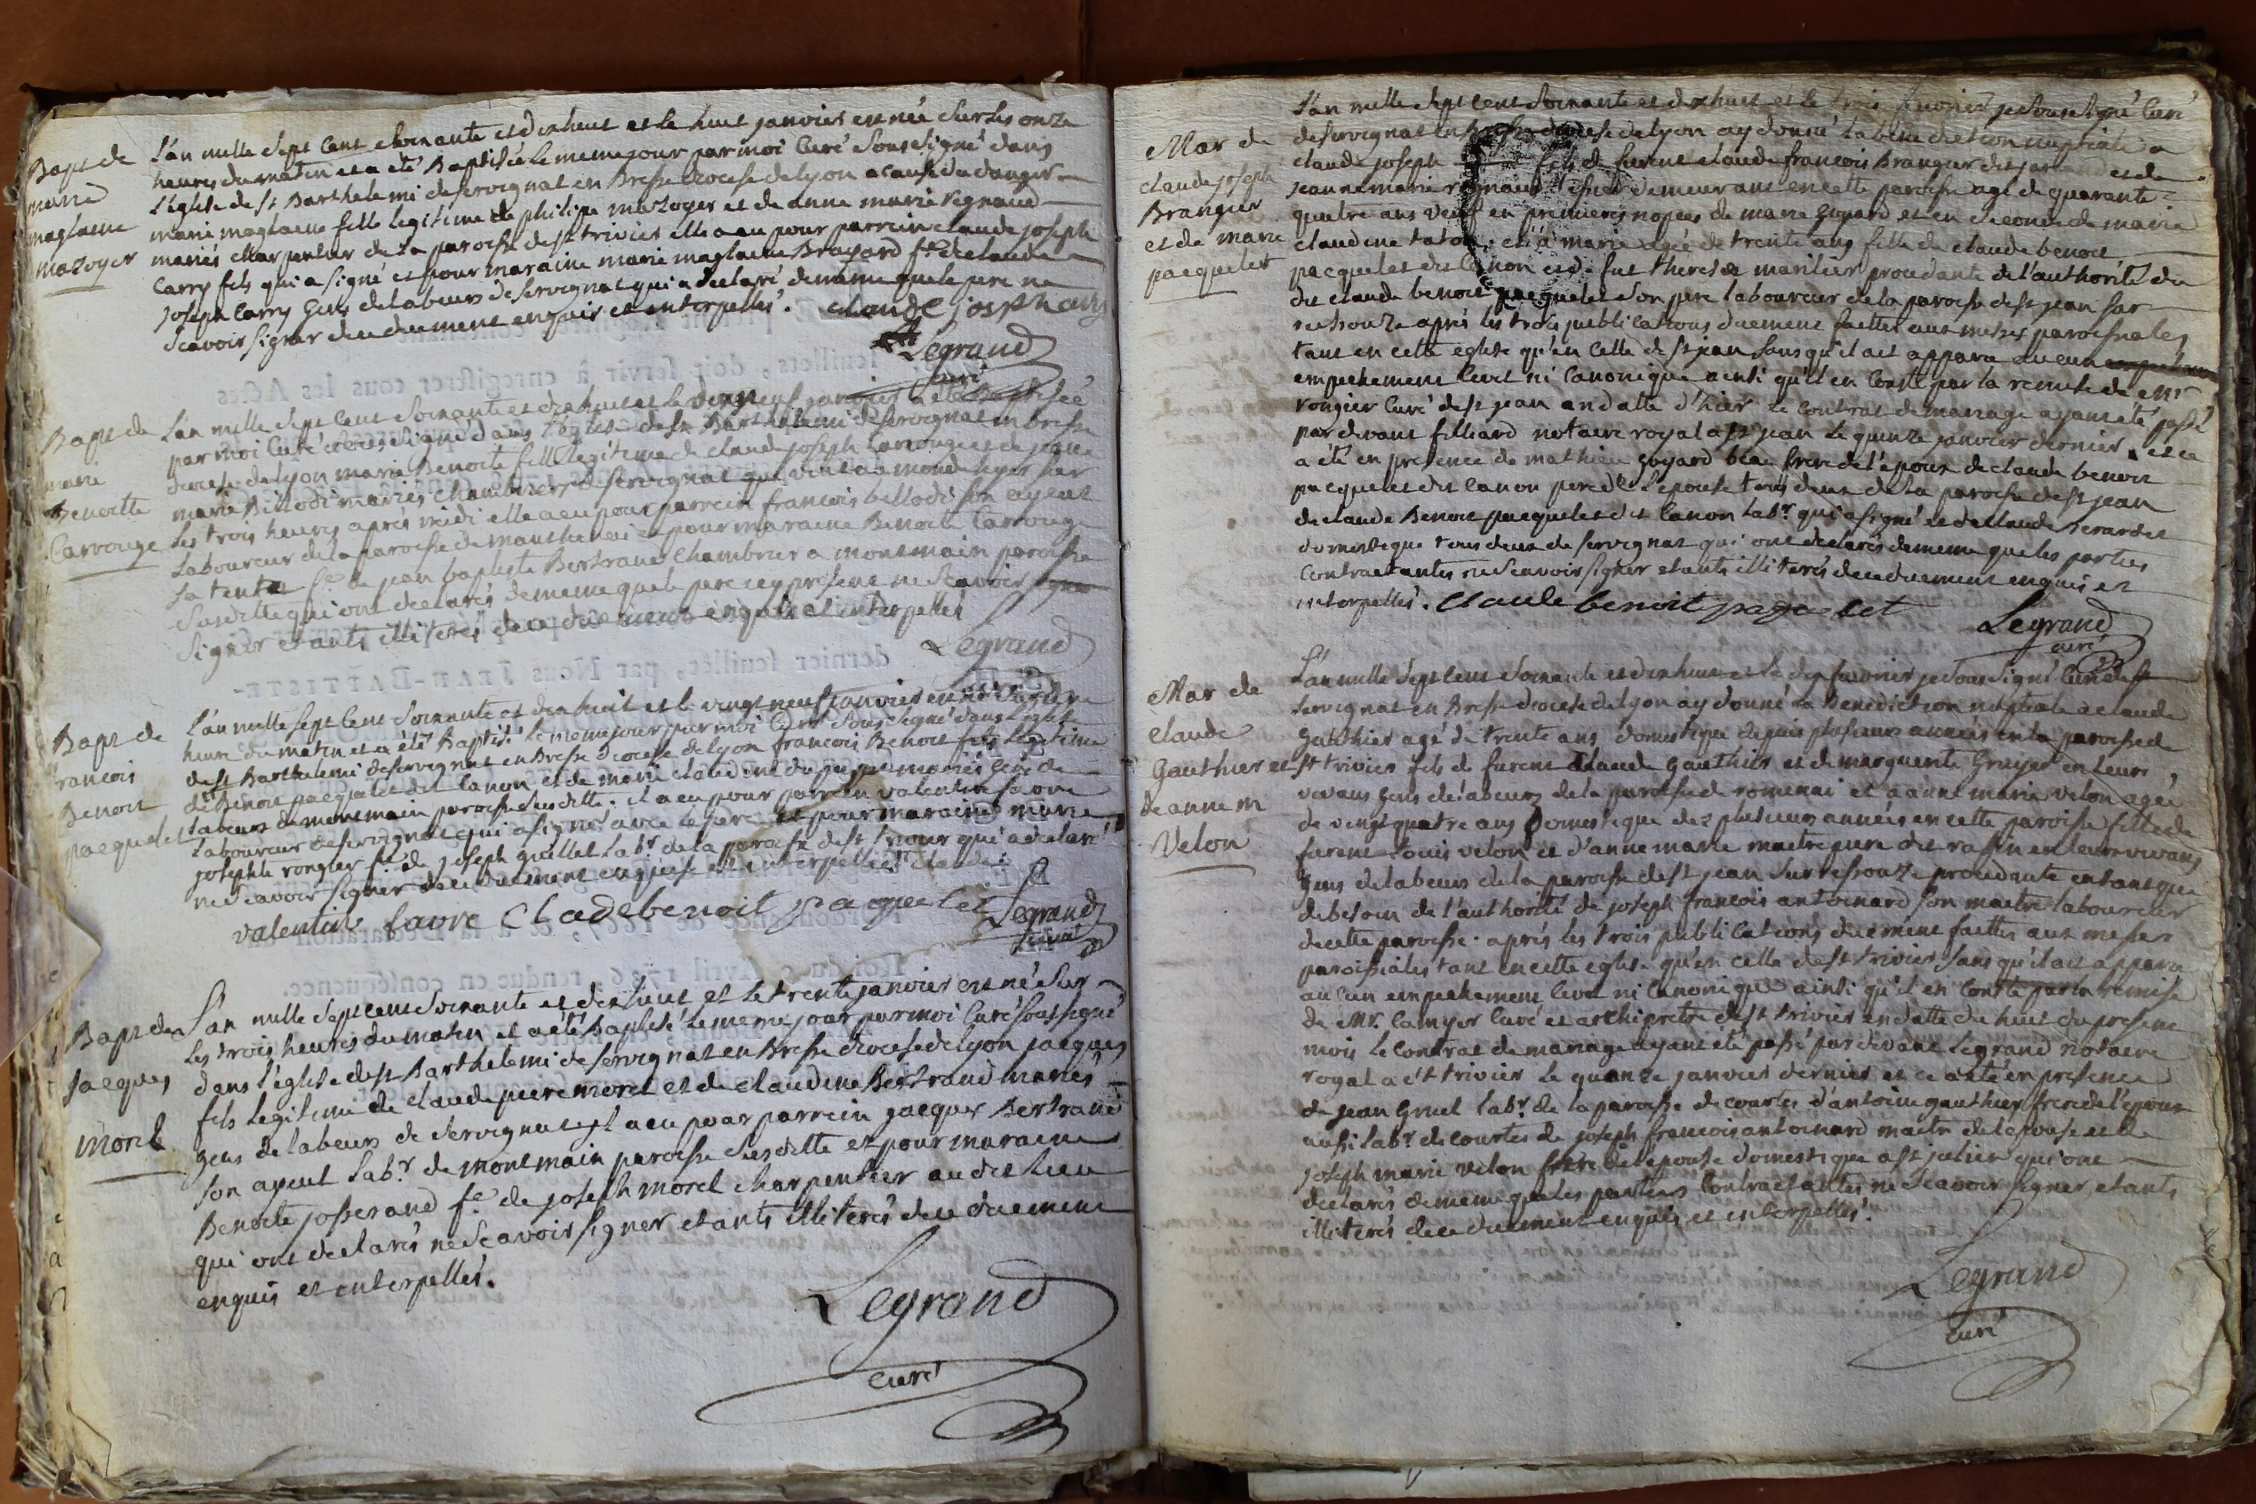 Bapt de
marie
maglaine
mazoyer
L'an mille sept cent soixante et dix huit et le huit janvier est née sur les onze
heures du matin et a été Baptisée le meme jour par moi Curé sous signé dans
l'église de st Barthelemi de servignat en Bresse diocese de lyon a cause du danger
marie maglaine fille legitime de philipe mazoyer et de anne marie regnaud
mariés charpentier de la paroisse de st trivier elle a eu pour parrein claude joseph
Carry fils qui a signé et pour maraine marie maglaine Brayard fe de claude
joseph Carry Gens de labeurs de servignat qui a declaré de meme que le pere ne
scavoir signer de ce duement enquis et interpellés. claude joseph carry
Legrand
curé
Bapt de
marie
Benoitte
Carrouge
L'an mille sept cent soixante et dix huit et le dix neuf janvier a été Baptisée
par moi Curé sous signé dans l'église de st Barthelemi de servignat en bresse
diocese de lyon marie Benoite fille legitime de claude joseph Carrouge et de jeane
marie Bellodi mariés chambriers de servignat qui vint au monde hyer sur
les trois heures après midi elle a eu pour parrein francois bellodi son ayeul
Laboureur de la paroisse de mantenai et pour maraine Benoite Carrouge
sa tente fe de jean baptiste Bertrand chambrier a montmain paroisse
susditte qui ont declarés de meme que le pere icy present ne scavoir
signer etants illiterés de ce duement enquis et interpellés
Legrand
Bapt de
francois
Benoit
pacquelet
L'an mille sept cent soixante et dix huit et le vingt neuf janvier est né sur
heure du matin et a été Baptisé le meme jour par moi Curé sous signé dans l'église
de st Barthelemi de servignat en Bresse diocese de lyon francois Benoit fils legitime
de Benoit pacquelet dit Canon et de marie claudine mariés Gens de
labeurs de montmain paroisse susditte. il a eu pour parrein valentin favre
laboureur de servignat qui a signé avec le pere et pour maraine marie
josephte rongier fe de joseph guillet labr de la paroisse de st trivier qui a declaré
ne scavoir signer de ce duement enquise et interpellée.
valentin favre Cladebenoit paquelet Legrand
curé
Bapt de
jacques
morel
L'an mille sept cent soixante et dix huit et le trente janvier est né sur
les trois heures du matin et a été Baptisé le meme jour par moi Curé sous signé
dans l'église de st Barthelemi de servignat en Bresse diocese de lyon jacques
fils legitime de claude pierre morel et de claudine Bertrand mariés
gens de labeurs de servignat il a eu pour parrein jacques Bertrand
son ayeul labr de montmain paroisse susditte et pour maraine
Benoite josserand fe de joseph morel charpentier au dit lieu
qui ont declarés ne scavoir signer etants illiterés de ce duement
enquis et interpellés.
Legrand
curé
Mar de
claude joseph
Brangier
et de marie
pacquelet
L'an mille sept cent soixante et dix huit et le trois fevrier je sous signé Curé
de servignat en Bresse diocese de lyon ay donné la benediction nuptiale a
claude joseph fils de furent claude francois Brangier dit et de
jeanne marie regnaud demeurant en cette paroisse agé de quarante
quatre ans veuf en premieres nopces de marie Goyard et en seconde de marie
claudine taton, et a marie agée de trente ans fille de claude benoit
pacquelet dit Canon et de fut therese marilier procedante de l'authorité du
dit claude benoit pacquelet son pere laboureur de la paroisse de st jean sur
reissouze après les trois publications duement faittes aux messes paroissiales
tant en cette église qu'en celle de st jean sans qu'il ait apparu aucun
empechement civil ni Canonique ainsi qu'il en conste par la remise de Mr
rongier Curé de st jean en datte d'hier le contrat de mariage ayant été passé
par devant filliard notaire royal a st jean le quinze janvier dernier, et ce
a été en presence de mathieu goyard beau frere de l'epoux de claude benoit
pacquelet dit Canon pere de l'epouse tous deux de la paroisse de st jean
de claude Benoit pacquelet dit Canon labr qui a signé et de claude
domestique tous deux de servignat qui ont declarés de meme que les parties
contractantes ne scavoir signer etants illiterés de ce duement enquis et
interpellés. claude benoit paquelet Legrand
curé
Mar de
claude
Gauthier et
de anne m
Velon
L'an mille sept cent soixante et dix huit et le dix fevrier je sous signé Curé de
servignat en Bresse diocese de lyon ay donné la Benediction nuptiale a claude
Gauthier agé de trente ans domestique depuis plusieurs années en la paroisse de
st trivier fils de furent claude Gauthier et de marguerite Gruyer en leurs
vivans gens de labeurs de la paroisse de romenai et a anne marie velon agée
de vingt quatre ans domestique dez plusieurs années en cette paroisse fille de
furent louis velon et d'anne marie maitrepierre dit rafin en leurs vivans
gens de labeurs de la paroisse de st jean sur ressouze procedante en tant que
de besoin de l'authorité de joseph francois antoinard son maitre laboureur
de cette paroisse. après les trois publications duement faittes aux messes
paroissiales tant en cette eglise qu'en celle de st trivier sans qu'il ait apparu
aucun empechement civil ni canonique ainsi qu'il en conste par la remise
de Mr. Camyer Curé et archiprêtre de st trivier en datte du huit du present
mois le contrat de mariage ayant été passé par devant Legrand notaire
royal a st trivier le quinze janvier dernier et ce a été en presence
de jean Gruel labr. de la paroisse de courtes d'antoine gauthier frere de l'epoux
aussi labr de courtes de joseph francois antoinard maitre de l'epouse et de
joseph marie velon frere de l'epouse domestique a st julien qui ont
declarés de meme que les parties contractantes ne scavoir signer, etants
illiterés de ce duement enquis et interpellés.
Legrand
curé